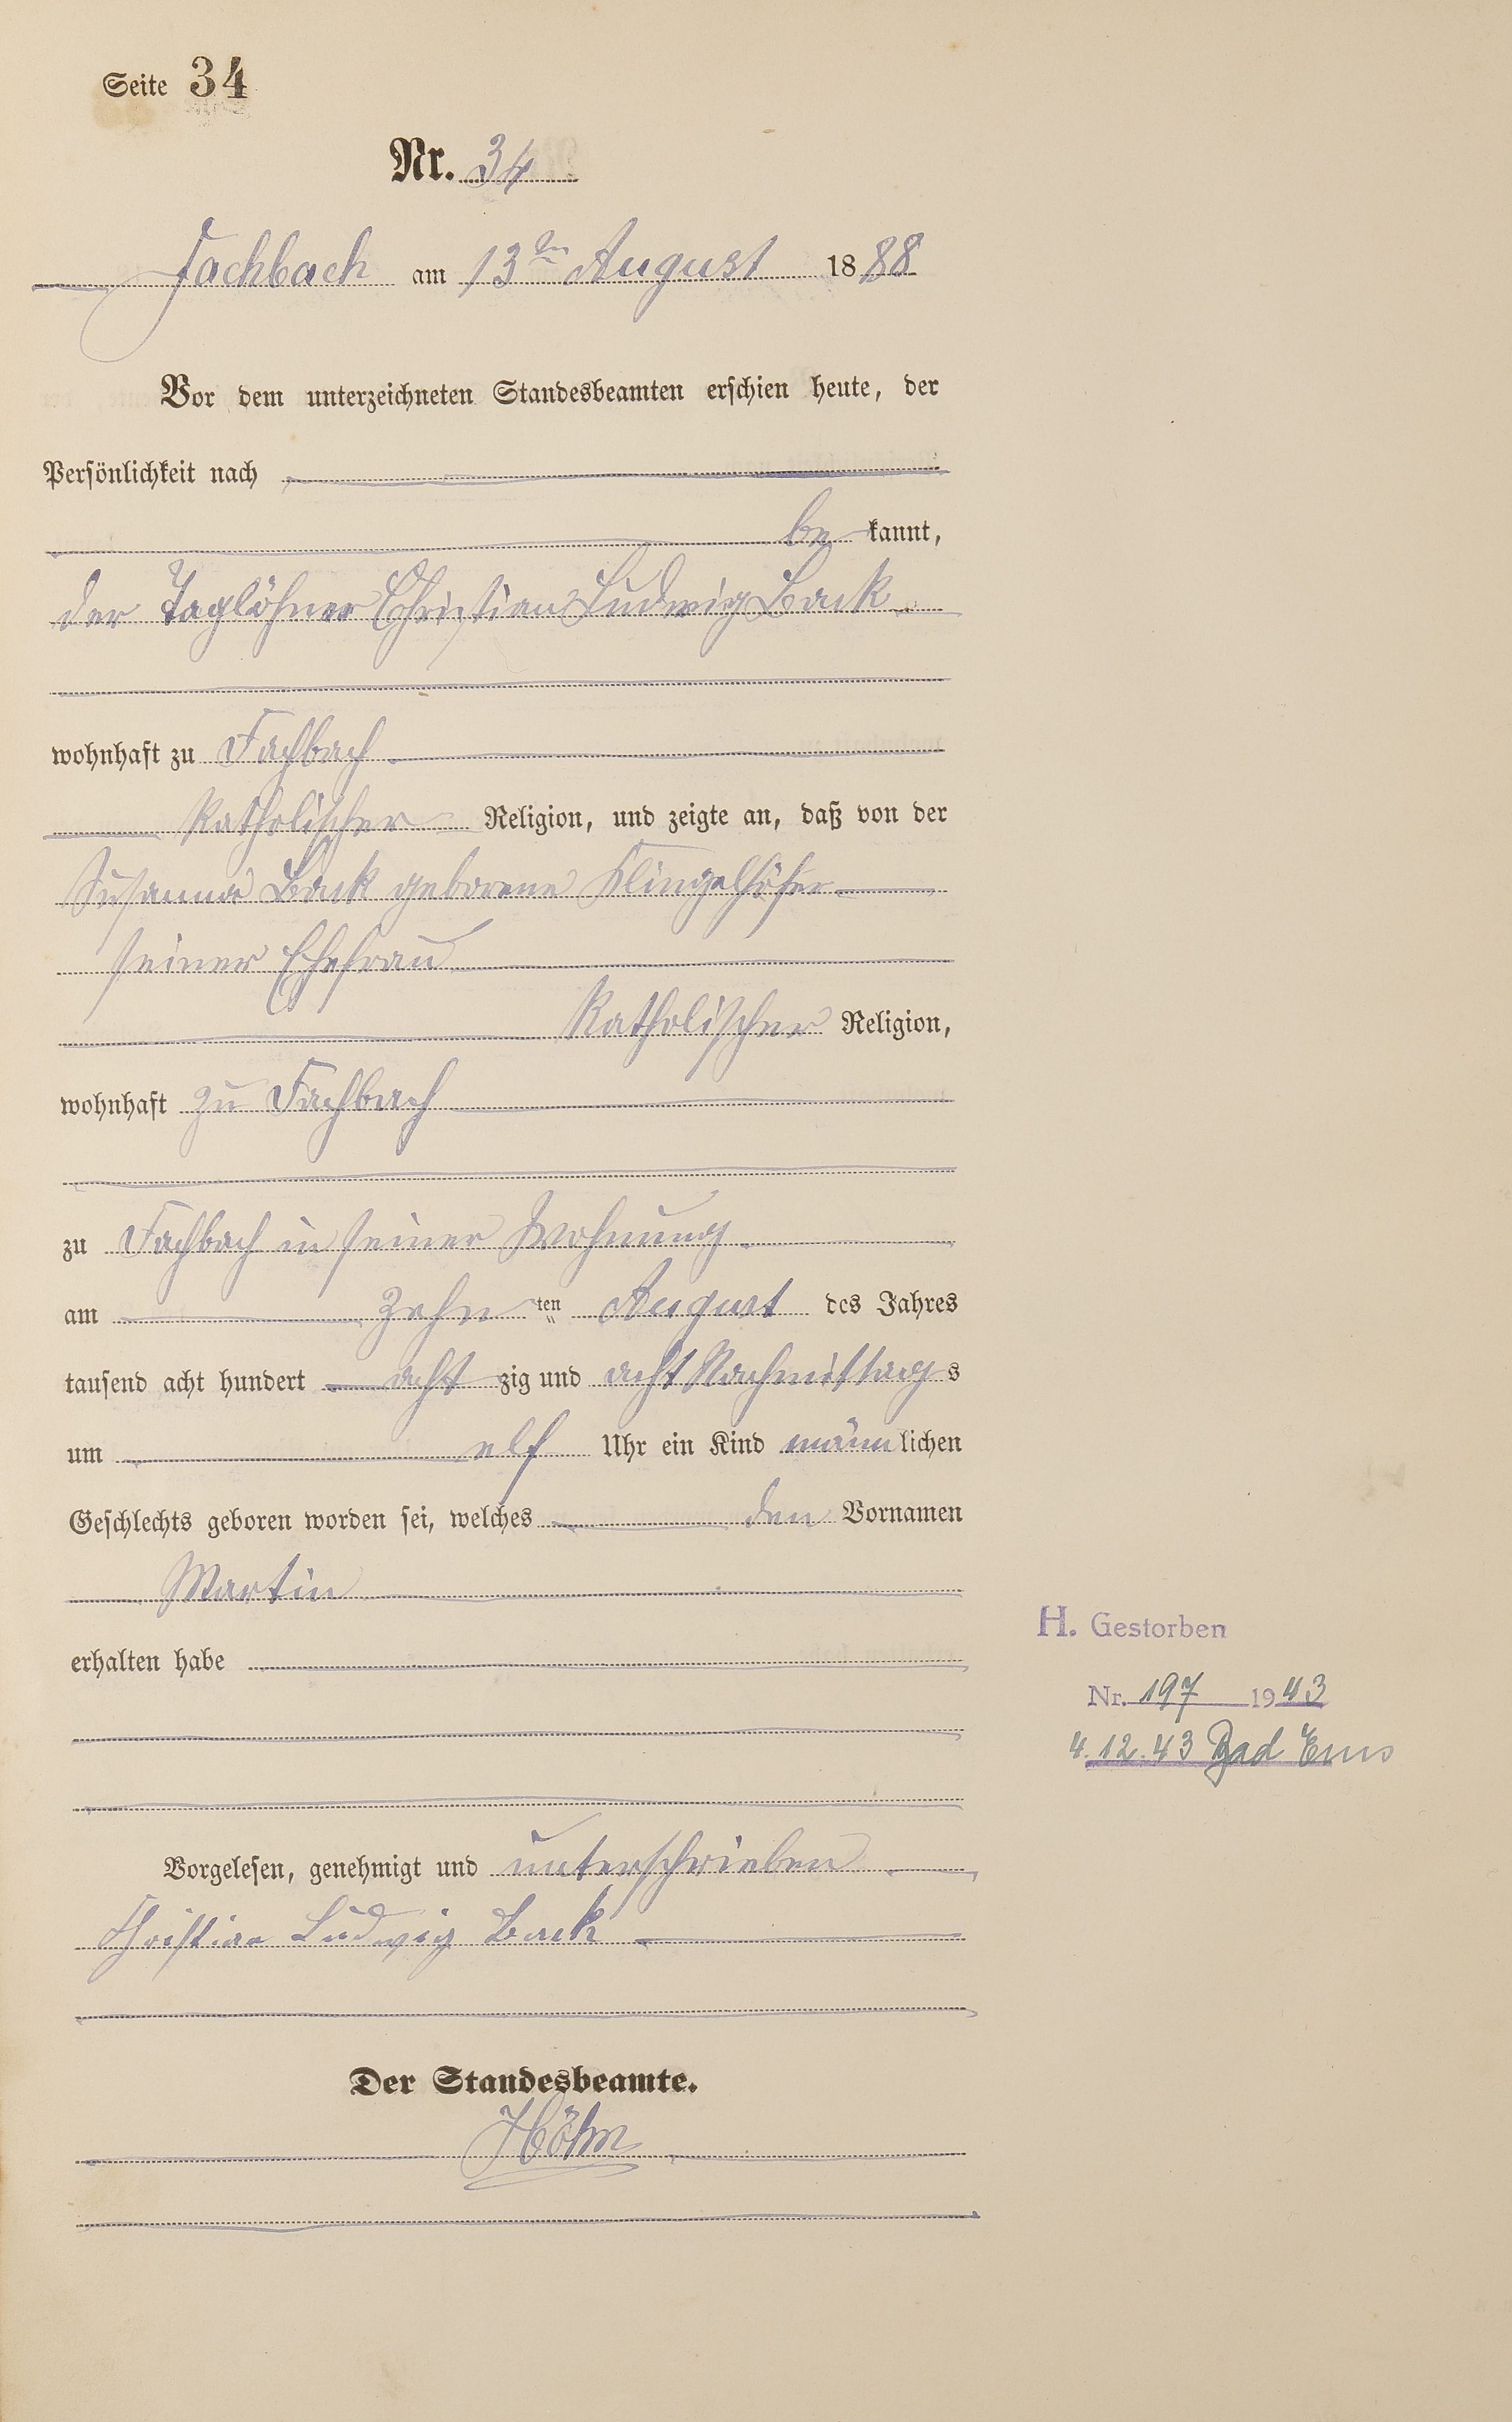 Seite 34
Nr. 34
Fachbach am 13ten August 1888
Vor dem unterzeichneten Standesbeamten erschien heute, der
Persönlichkeit nach
be kannt,
der Taglöhner Christian Ludwig Back
wohnhaft zu Fachbach
Katholischer Religion, und zeigte an, daß von der
Susanna Back geborene Klingelhöfer
seiner Ehefrau
Katholischer Religion,
wohnhaft zu Fachbach
zu Fachbach in seiner Wohnung
am zehn ten August des Jahres
tausend acht hundert acht zig und acht Nachmittag s
um elf Uhr ein Kind männ lichen
Geschlechts geboren worden sei, welches den Vornamen
Martin
erhalten habe
H. Gestorben
Nr. 197 1943
4.12.43 Bad Ems
Vorgelesen, genehmigt und unterschrieben
Christian Ludwig Back
Der Standesbeamte.
Höhn